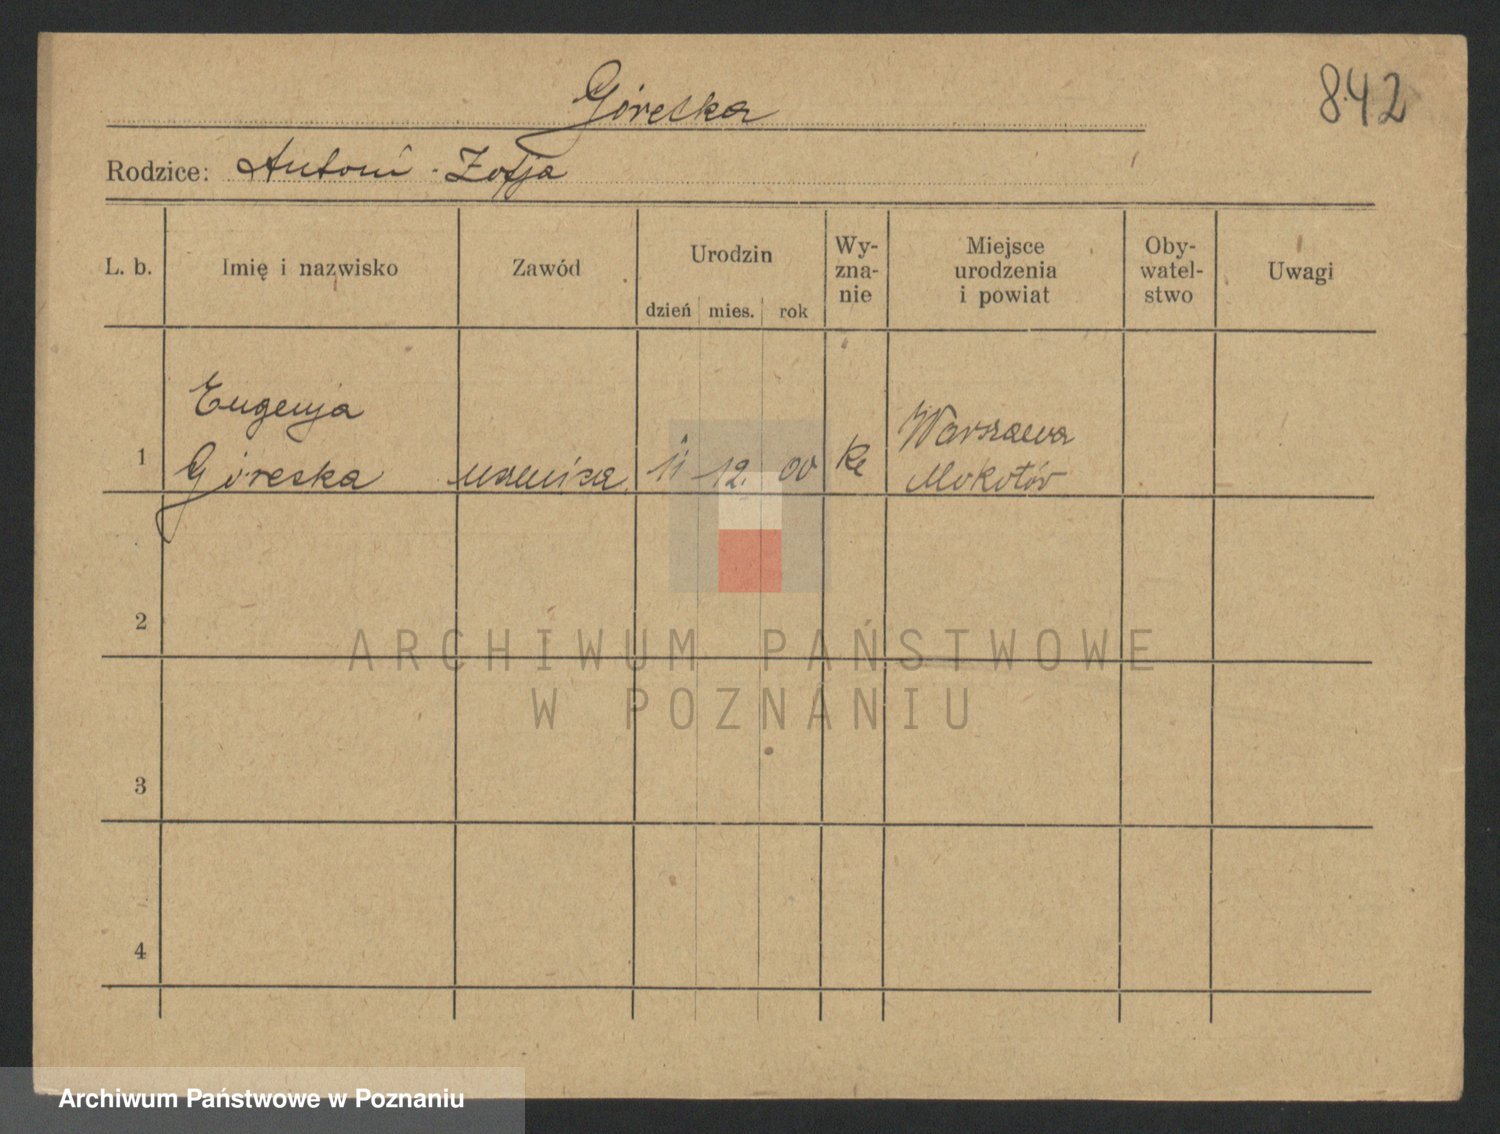 Góreska
842
Rodzice: Antoni - Zofja
L. b.
Imię i nazwisko
Zawód
Urodzin
dzień mies. rok
Wy-
zna-
nie
Miejsce
urodzenia
i powiat
Oby-
watel-
stwo
Uwagi
Eugenja
1 Góreska 11 12. 00 Warszawa
Mokotów
2
3
4
ARCHIWUM PAŃSTWOWE
W POZNANIU
Archiwum Państwowe w Poznaniu